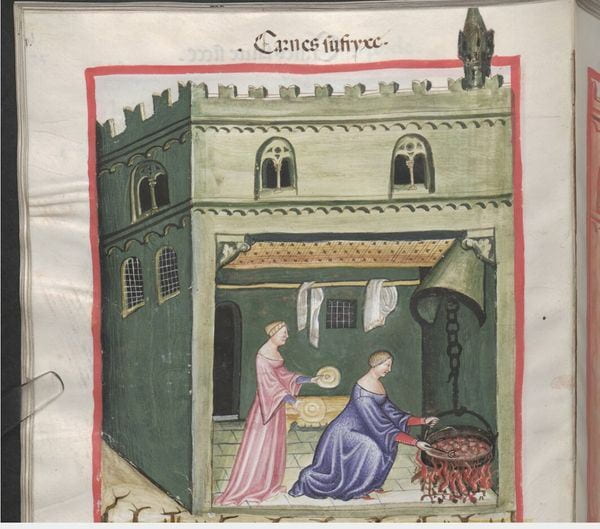 . Carnes sufryxe .